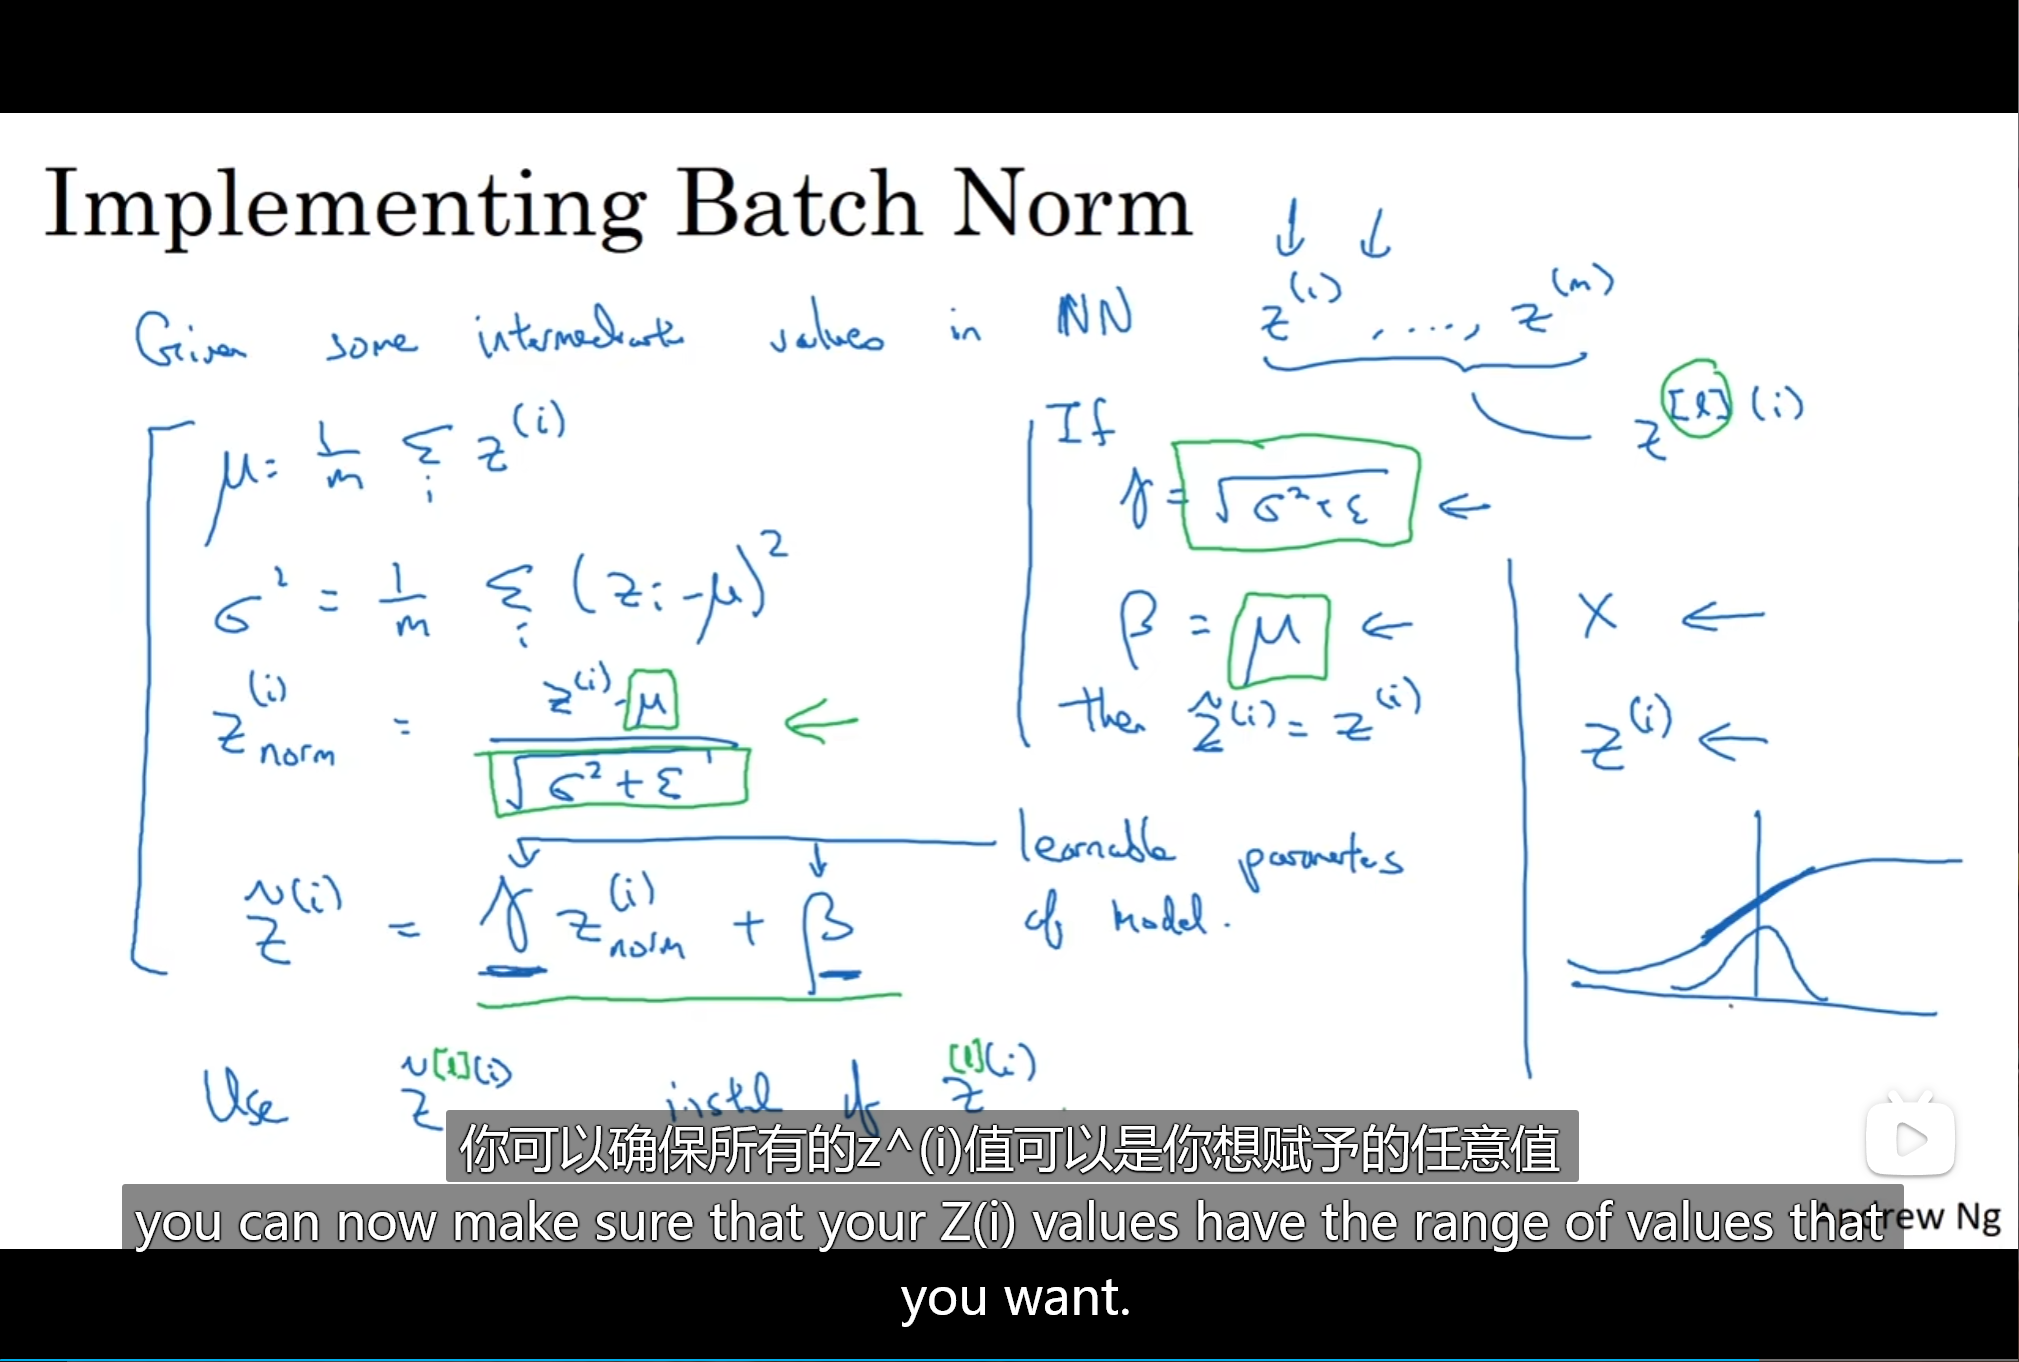 Implementing Batch Norm
Given some intermediate values in NN z^(i), ...., z^(m)
z^[l](i)
μ = 1/m Σ_i z^(i)
σ^2 = 1/m Σ_i (z_i - μ)^2
z^(i)_norm = (z^(i) - μ) / √(σ^2 + ε)
z̃^(i) = γ z^(i)_norm + β
If
γ = √(σ^2 + ε) ←
β = μ ←
then z̃^(i) = z^(i)
learnable parameters
of model.
X ←
z^(i) ←
Use z̃^[l](i) instead of z^[l](i)
你可以确保所有的z^(i)值可以是你想赋予的任意值
you can now make sure that your Z(i) values have the range of values that
you want.
Andrew Ng